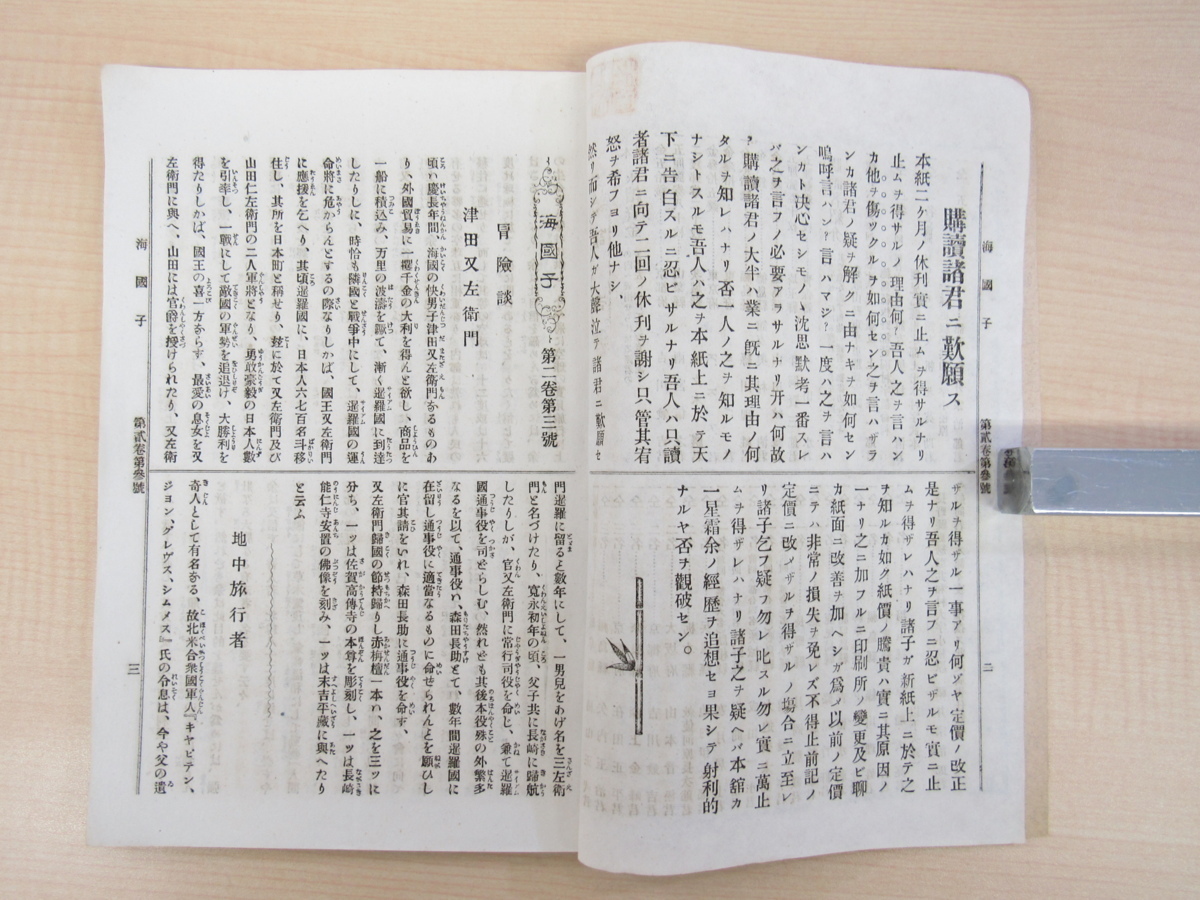 海國子
第貳卷第參號
二
購讀諸君ニ歎願ス
本紙二ケ月ノ休刊實ニ止ムヲ得サルナリ
止ムヲ得サルノ理由何?吾人之ヲ言ハン
カ他ヲ傷ックルヲ如何セン之ヲ言ハザラ
ンカ諸君ノ疑ヲ解クニ由ナキヲ如何セン
嗚呼言ハン?言ハマジ?一度ハ之ヲ言ハ
ンカト決心セシモノヽ沈思默考一番スレ
バ之ヲ言フノ必要アラサルナリ开ハ何故
?購讀諸君ノ大半ハ業ニ既ニ其理由ノ何
タルヲ知レハナリ否一人ノ之ヲ知ルモノ
ナシトスルモ吾人ハ之ヲ本紙上ニ於テ天
下ニ告白スルニ忍ビサルナリ吾人ハ只讀
者諸君ニ向テ二回ノ休刊ヲ謝シ只管其宥
恕ヲ希フヨリ他ナシ、
然リ而シテ吾人ガ大聲泣テ諸君ニ歎願セ
ザルヲ得ザル一事アリ何ゾヤ定價ノ改正
是ナリ吾人之ヲ言フニ忍ビザルモ實ニ止
ムヲ得ザレハナリ諸子ガ新紙上ニ於テ之
ヲ知ルカ如ク紙價ノ騰貴ハ實ニ其原因ノ
一ナリ之ニ加フルニ印刷所ノ變更及ビ聊
カ紙面ニ改善ヲ加ヘシガ爲メ以前ノ定價
ニテハ非常ノ損失ヲ免レズ不得止前記ノ
定價ニ改メザルヲ得ザルノ塲合ニ立至レ
リ諸子乞フ疑フ勿レ叱スル勿レ實ニ萬止
ムヲ得ザレハナリ諸子之ヲ疑ヘバ本舘カ
一星霜余ノ經歷ヲ追想セヨ果シテ射利的
ナルヤ否ヲ觀破セン。
海國子 第二卷第三號
冒險談
津田又左衛門
頃ハ慶長年間、海國の快男子津田又左衛門なるものあ
り、外國貿易に一攫千金の大利を得んと欲し、商品を
一船に積込み、万里の波濤を蹴て、漸く暹羅國に到達
したりしに、時恰も隣國と戰爭中にして、暹羅國の運
命將に危からんとするの際なりしかば、國王又左衛門
に應援を乞へり、其頃暹羅國に、日本人六七百名斗移
住し、其所を日本町と稱せり、玆に於て又左衛門及び
山田仁左衛門の二人軍將となり、勇敢豪毅の日本人數
を引率し、一戰にして敵國の軍勢を追退け、大勝利を
得たりしかば、國王の喜一方ならす、最愛の息女を又
左衛門に與へ、山田には官爵を授けられたり、又左衛
門暹羅に留ると數年にして、一男兒をあげ名を三左衛
門と名づけたり、寛永初年の頃、父子共に長崎に歸航
したりしが、官又左衛門に常行司役を命し、兼て暹羅
國通事役を司どらしむ、然れども其後本役殊の外繁多
なるを以て、通事役ハ、森田長助とて、數年間暹羅國に
在留し通事役に適當なるものに命せられんとを願ひし
に官其請をいれ、森田長助に通事役を命す、
又左衛門歸國の節持歸りし赤栴檀一本ハ、之を三ツに
分ち、一ッは佐賀高傳寺の本尊を彫刻し、一ッは長崎
能仁寺安置の佛像を刻み、一ッは末吉平藏に與へたり
と云ふ
地中旅行者
奇人として有名なる、故北米合衆國軍人『キャピテン、
ジョン、グレヴス、シムメス』氏の令息は、今や父の遺
海國子
第貳卷第參號
三